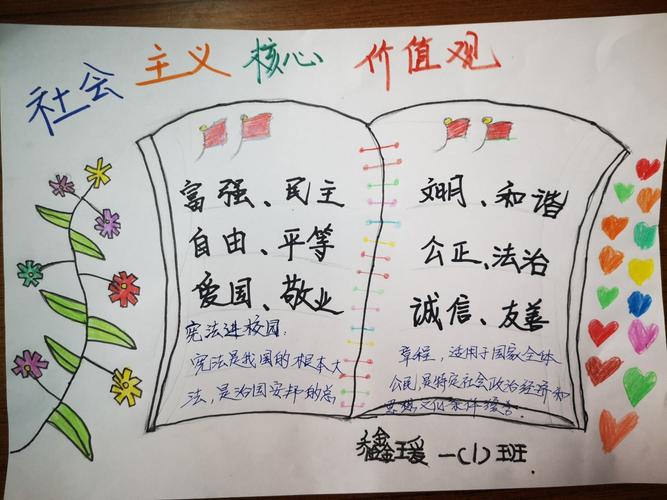 社会主义核心价值观
富强、民主
自由、平等
爱国、敬业
宪法进校园:
宪法是我国的根本大
法,是治国安邦的总
文明、和谐
公正、法治
诚信、友善
章程,适用于国家全体
公民,是特定社会政治经济和
思想文化条件
一(1)班